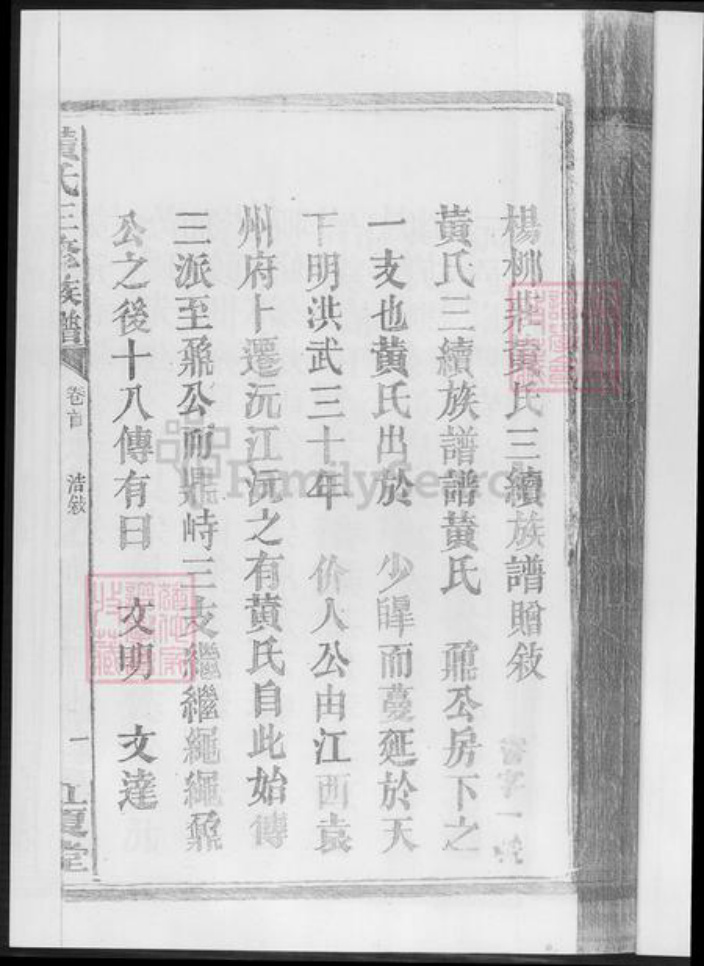 楊柳裴黃氏三續族譜贈敘
黃氏三續族譜譜黃氏 鼐公房下之
一支也黃氏出於 少皡而蔓延於天
下明洪武三十年 价人公由江西袁
州府卜遷沅江沅之有黃氏自此始傳
三派至鼐公而鼎峙三支繼繼繩繩鼐
公之後十八傳有曰 文明 文達
黃氏三修族譜 卷首 浩敘 一 江夏堂
FamilySearch